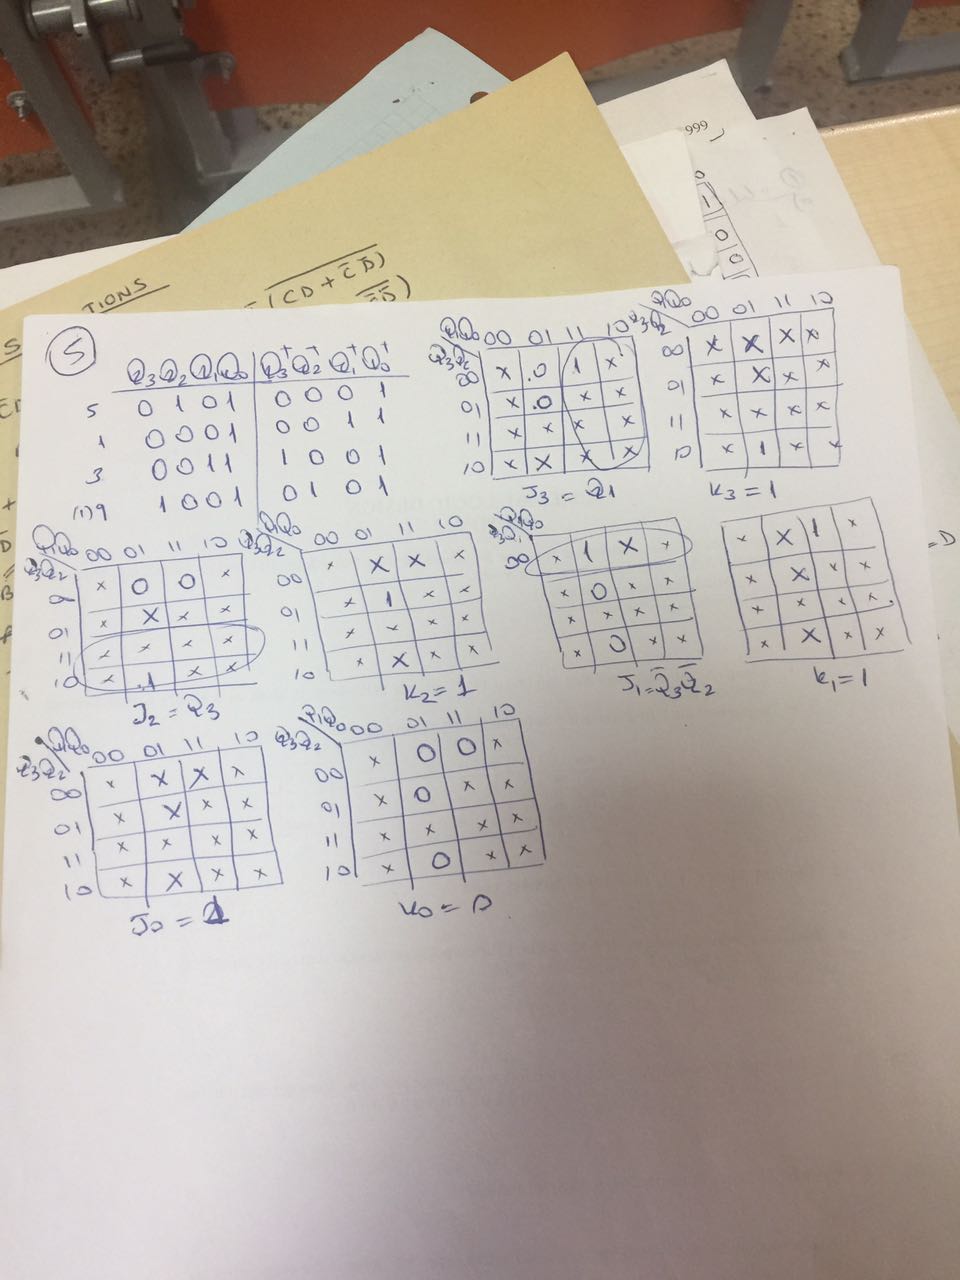 999
TIONS
(CD + C̅D̅)
C̅D̅)
1
0
0
5
Q3 Q2 Q1 Q0 | Q3+ Q2+ Q1+ Q0+
5 0 1 0 1 | 0 0 0 1
1 0 0 0 1 | 0 0 1 1
3 0 0 1 1 | 1 0 0 1
(1) 9 1 0 0 1 | 0 1 0 1
Q1Q0 00 01 11 10
Q3Q2
00 x 0 1 x
01 x 0 x x
11 x x x x
10 x x x x
J3 = Q1
Q1Q0 00 01 11 10
Q3Q2
00 x x x x
01 x x x x
11 x x x x
10 x 1 x x
K3 = 1
Q1Q0 00 01 11 10
Q3Q2
00 x 0 0 x
01 x x x x
11 x x x x
10 x 1 x x
J2 = Q3
Q1Q0 00 01 11 10
Q3Q2
00 x x x x
01 x 1 x x
11 x x x x
10 x x x x
K2 = 1
Q1Q0
00 x 1 x x
x 0 x x
x x x x
x 0 x x
J1 = Q̅3 Q̅2
x x 1 x
x x x x
x x x x
x x x x
K1 = 1
Q1Q0 00 01 11 10
Q3Q2
00 x x x x
01 x x x x
11 x x x x
10 x x x x
J0 = 1
Q1Q0 00 01 11 10
Q3Q2
00 x 0 0 x
01 x 0 x x
11 x x x x
10 x 0 x x
K0 = 0